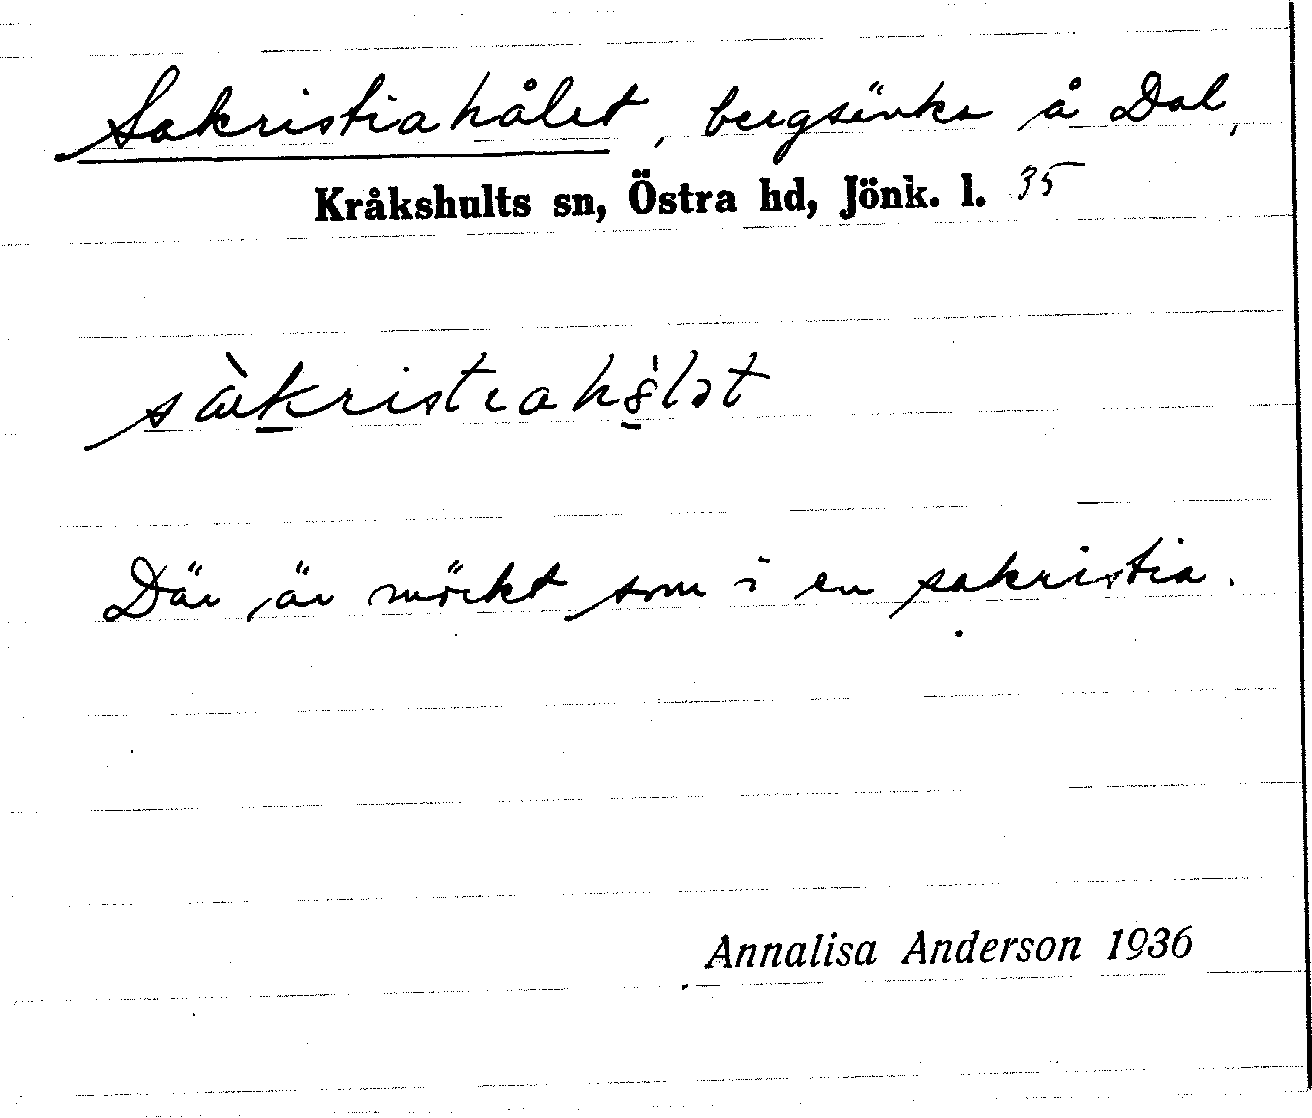 Sakristiahålet, bergsänka å Dal,
Kråkshults sn, Östra hd, Jönk. l. 35
Där är mörkt som i en sakristia.
Annalisa Anderson 1936